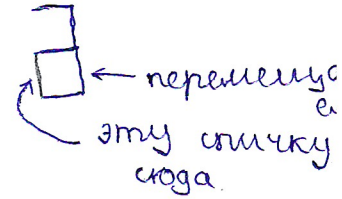 перемеща
е
эту спичку
сюда.